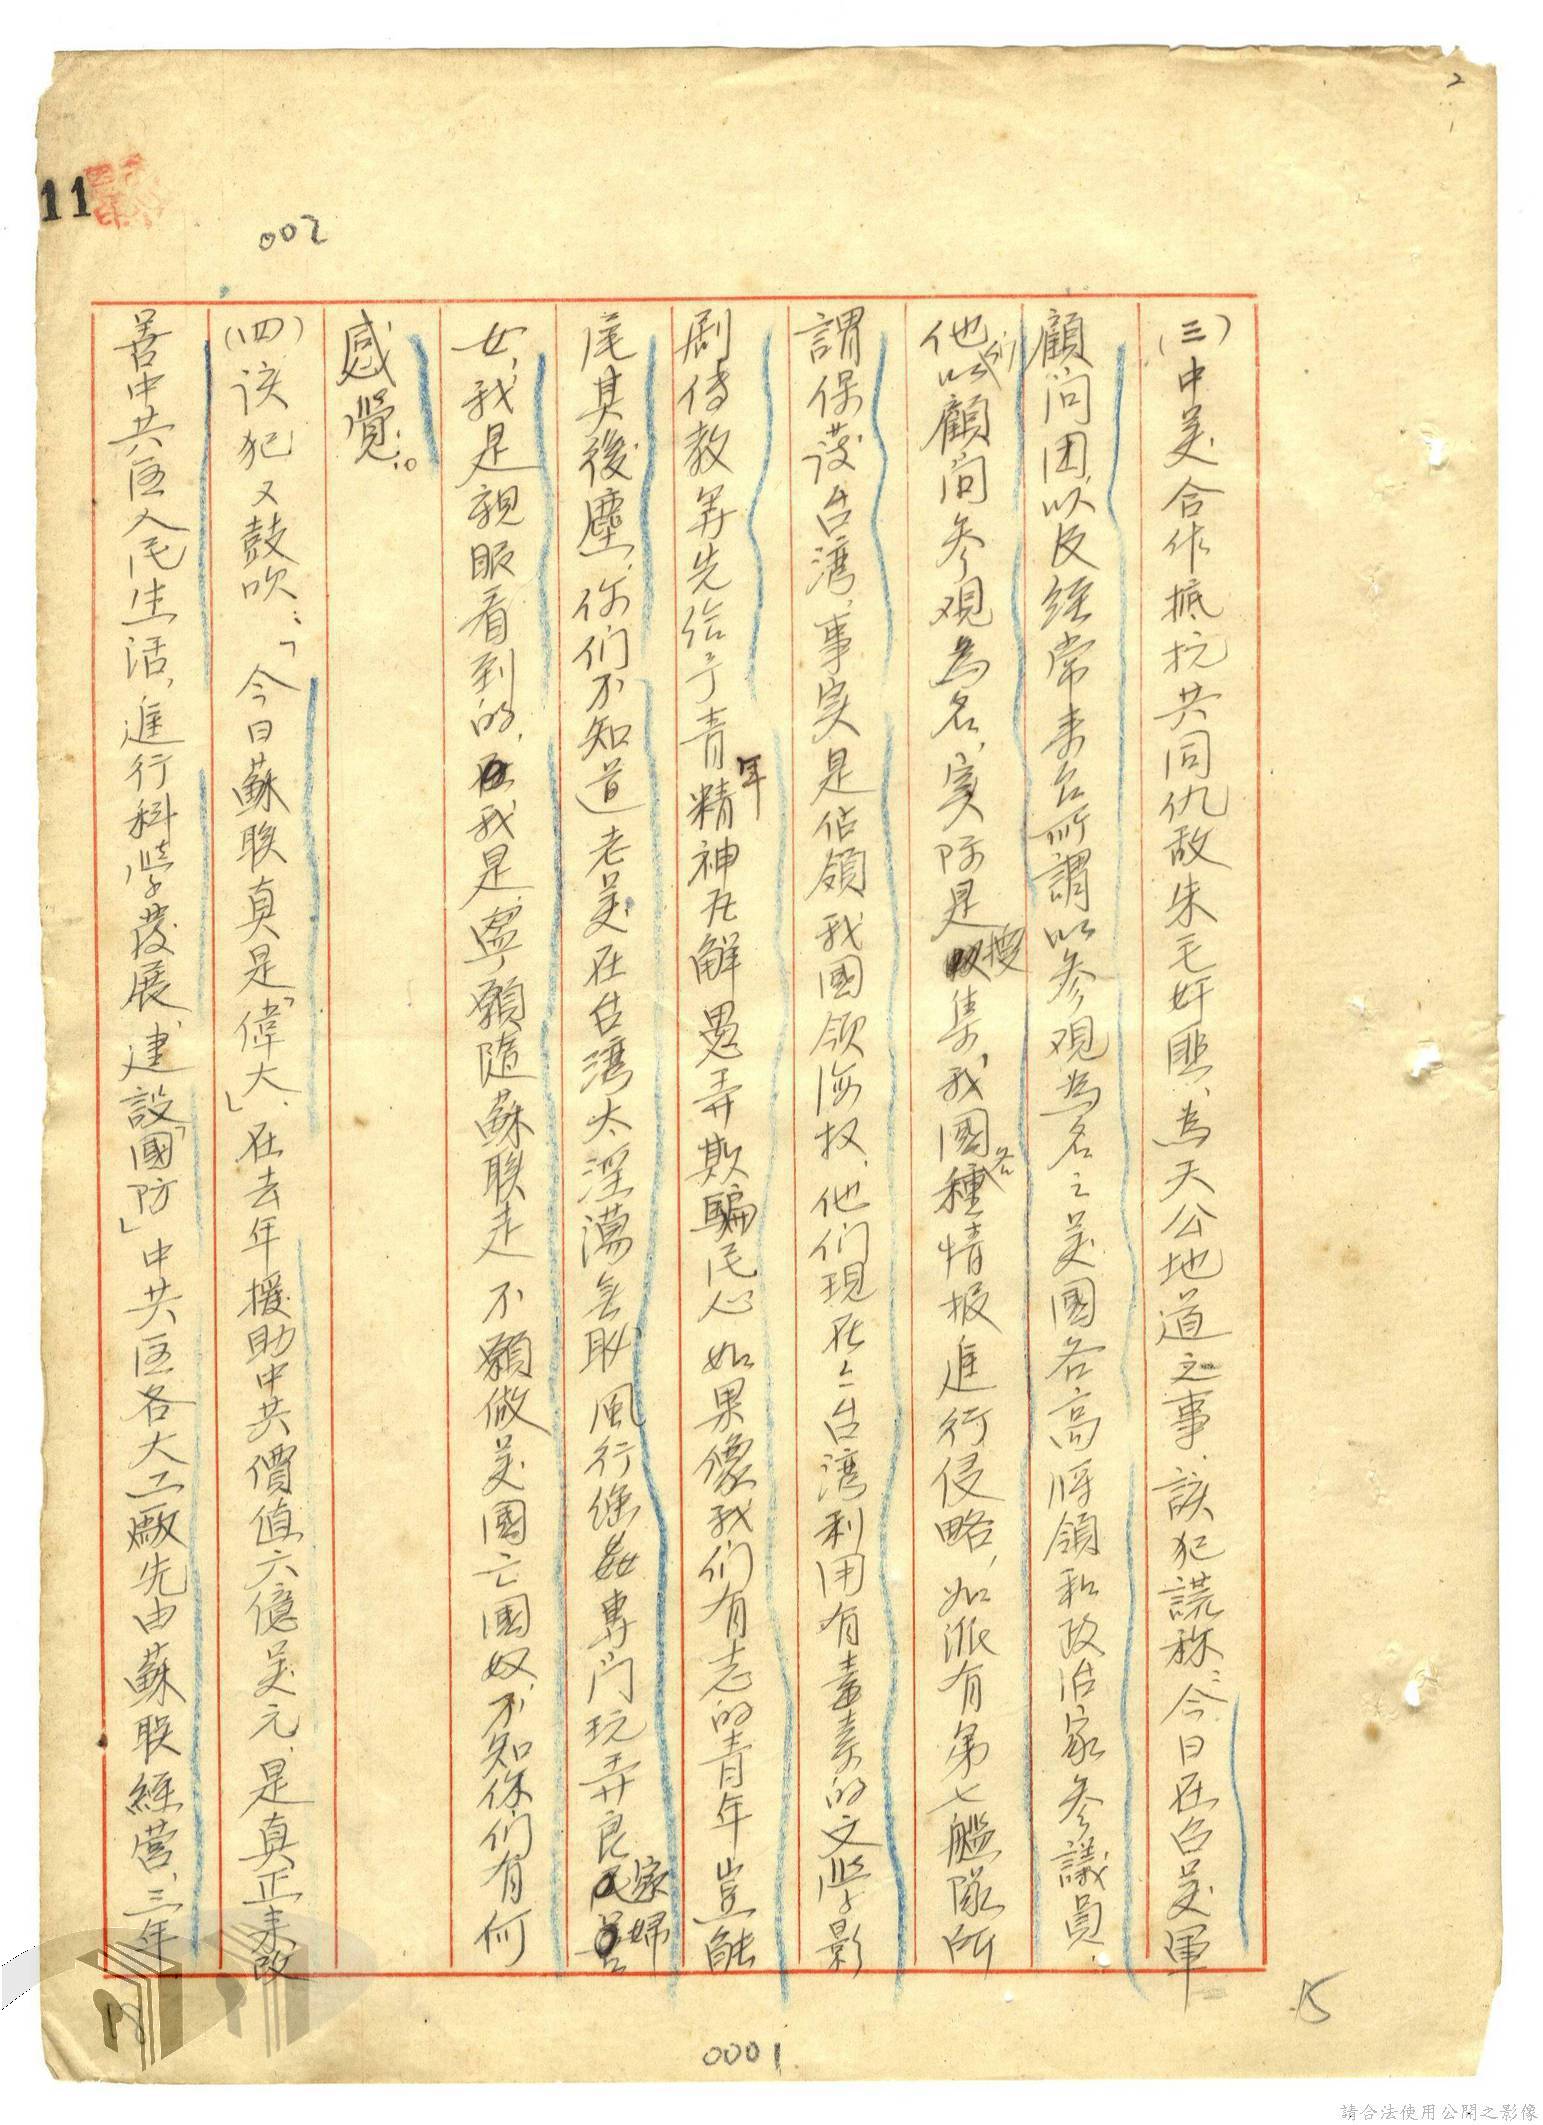 2
11
002
(三)中美合作抵抗共同仇敌朱毛奸匪、為天公地道之事、該犯謊称：今日在台美軍
顧问团、以及経常来台所謂以参观為名之美國各高將領和政治家参議員、
他们以顧问参观為名、实际是搜集、我國各種情报進行侵略、如派有第七艦隊所
謂保护台湾、事实是佔領我國領海权、他们現在台湾利用有毒素的文學影
剧传教等先给予青年精神在解愚弄欺騙民心如果像我们有志的青年豈能
尾其後塵、你们不知道老美在台湾太淫蕩無耻風行強姦專门玩弄良家婦
女、我是親眼看到的、我是寧願隨蘇联走不願做美國亡國奴、不知你们有何
感覺：。
(四)该犯又鼓吹：「今日蘇联真是「偉大」、在去年援助中共價值六億美元、是真正来改
善中共區人民生活、進行科学發展、建設「國防」中共區各大工廠先由蘇联經营、三年
15
18
0001
請合法使用公開之影像